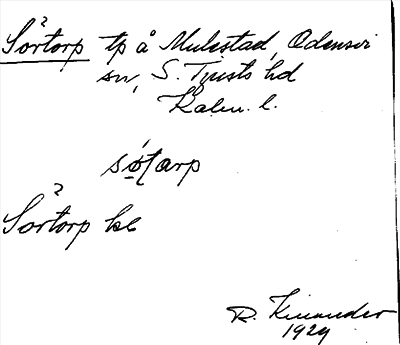 Sörtorp tp å Mulestad, Odensvi
sn, S. Tjusts hd
Kalm. l.
søtarp
Sörtorp kc
R. Kinander
1929